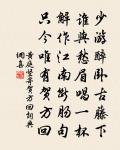 少游醉卧古藤下
谁与愁眉唱一杯
解作江南断肠句
只今唯有贺方回
黄庭坚寄贺方回词典